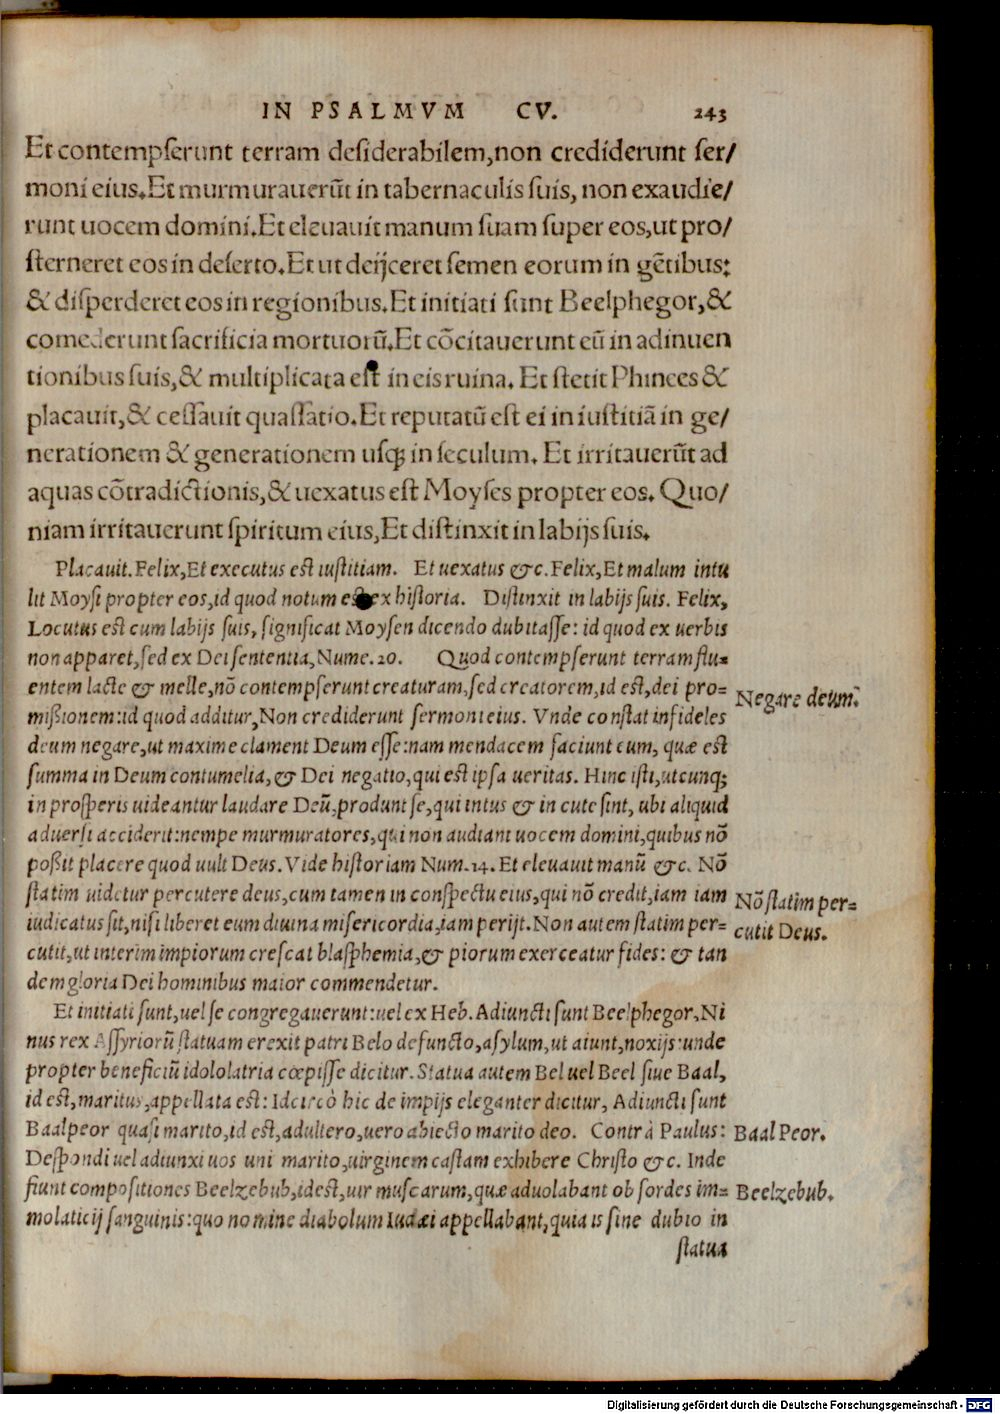 IN PSALMVM CV. 243
Et contempserunt terram desiderabilem, non crediderunt ser/
moni eius. Et murmurauerūt in tabernaculis suis, non exaudie/
runt uocem domini. Et eleuauit manum suam super eos, ut pro/
sterneret eos in deserto. Et ut deijceret semen eorum in gētibus:
& disperderet eos in regionibus. Et initiati sunt Beelphegor, &
comederunt sacrificia mortuorū. Et cōcitauerunt eū in adinuen
tionibus suis, & multiplicata est in eis ruina. Et stetit Phinees &
placauit, & cessauit quassatio. Et reputatū est ei in iustitiā in ge/
nerationem & generationem usq; in seculum. Et irritauerūt ad
aquas cōtradictionis, & uexatus est Moyses propter eos. Quo/
niam irritauerunt spiritum eius, Et distinxit in labijs suis.
Placauit. Felix, Et executus est iustitiam. Et uexatus &c. Felix, Et malum intu
lit Moysi propter eos, id quod notum est ex historia. Distinxit in labijs suis. Felix,
Locutus est cum labijs suis, significat Moysen dicendo dubitasse: id quod ex uerbis
non apparet, sed ex Dei sententia, Nume. 20. Quod contempserunt terram flu-
entem lacte & melle, nō contempserunt creaturam, sed creatorem, id est, dei pro-
missionem: id quod additur, Non crediderunt sermoni eius. Vnde constat infideles
deum negare, ut maxime clament Deum esse: nam mendacem faciunt eum, quæ est
summa in Deum contumelia, & Dei negatio, qui est ipsa ueritas. Hinc isti, utcunq;
in prosperis uideantur laudare Deū, produnt se, qui intus & in cute sint, ubi aliquid
aduersi acciderit: nempe murmuratores, qui non audiant uocem domini, quibus nō
possit placere quod uult Deus. Vide historiam Num. 14. Et eleuauit manū &c. Nō
statim uidetur percutere deus, cum tamen in conspectu eius, qui nō credit, iam iam
iudicatus sit, nisi liberet eum diuina misericordia, iam perijt. Non autem statim per-
cutit, ut interim impiorum crescat blasphemia, & piorum exerceatur fides: & tan
dem gloria Dei hominibus maior commendetur.
Et initiati sunt, uel se congregauerunt: uel ex Heb. Adiuncti sunt Beelphegor, Ni
nus rex Assyriorū statuam erexit patri Belo defuncto, asylum, ut aiunt, noxijs: unde
propter beneficiū idololatria cœpisse dicitur. Statua autem Bel uel Beel siue Baal,
id est, maritus, appellata est: Idcirco hic de impijs eleganter dicitur, Adiuncti sunt
Baalpeor quasi marito, id est, adultero, uero abiecto marito deo. Contrà Paulus:
Despondi uel adiunxi uos uni marito, uirginem castam exhibere Christo &c. Inde
fiunt compositiones Beelzebub, id est, uir muscarum, quæ aduolabant ob sordes im-
molaticij sanguinis: quo nomine diabolum Iudæi appellabant, quia is sine dubio in
statua
Negare deum.
Nō statim per-
cutit Deus.
Baal Peor.
Beelzebub.
Digitalisierung gefördert durch die Deutsche Forschungsgemeinschaft - DFG